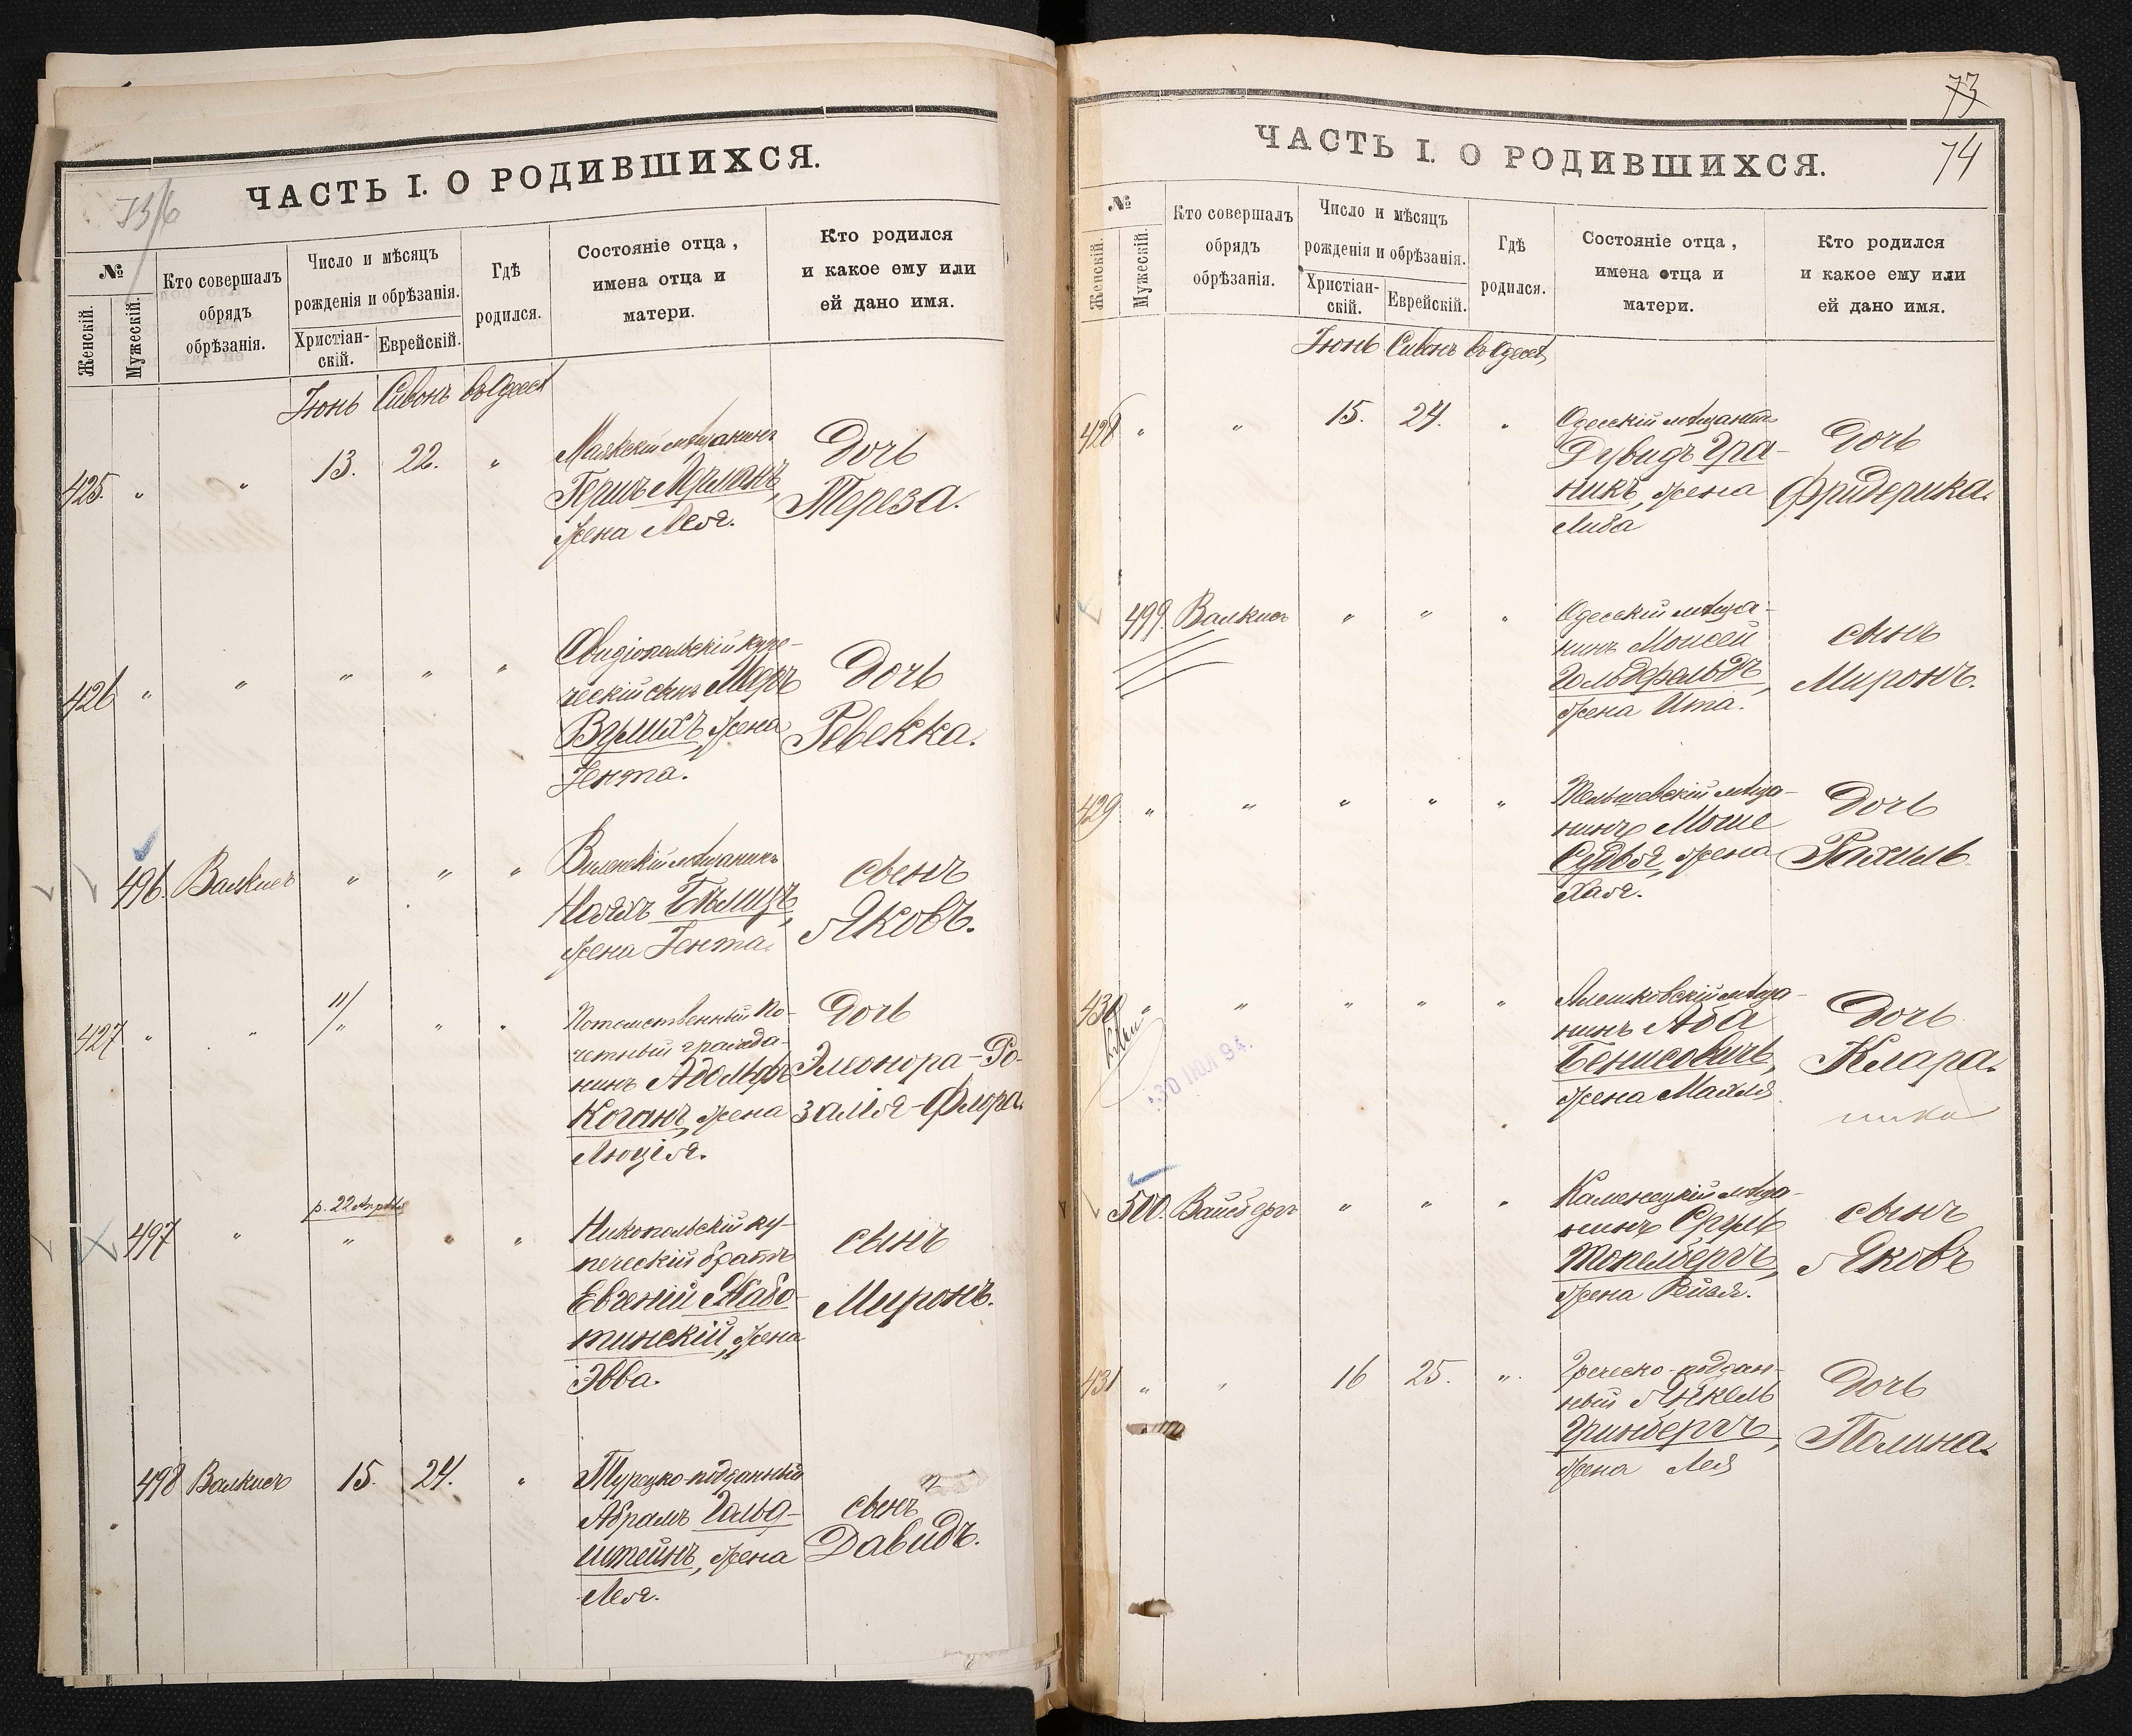 ЧАСТЬ I. О РОДИВШИХСЯ.
№
Женскій.
Мужескій.
Кто совершалъ
обрядъ
обрѣзанія.
Число и мѣсяцъ
рожденія и обрѣзанія.
Христіан-
скій.
Еврейскій.
Гдѣ
родился.
Состояніе отца,
имена отца и
матери.
Кто родился
и какое ему или
ей дано имя.
Іюнь Сивонъ въ Одессѣ
425. " " 13. 22. "
Маякскій мѣщанинъ
Герш Лерманъ,
жена Лея.
Дочь
Тереза.
426 " " " " "
Овидіопольскій купе-
ческій сынъ Меръ
Вульихъ, жена
Іента.
Дочь
Ревекка.
496. Валкисъ " " "
Виленскій мѣщанинъ
Ноахъ Бѣлицъ,
жена Гента.
сынъ
Яковъ.
427 " " 11/ " " "
Потомственный По-
четный гражда-
нинъ Адольфъ
Коганъ, жена
Люція.
Дочь
Элеонора-Ро-
залія-Флора.
р. 22 Апрѣля
497 " " " "
Никопольскій ку-
печескій братъ
Евгеній Жабо-
тинскій, жена
Эвва.
сынъ
Миронъ.
498 Валкисъ 15. 24. "
Турецко-подданный
Абрамъ Гольд-
штейнъ, жена
Лея.
сынъ
Давидъ.
73
74
ЧАСТЬ I. О РОДИВШИХСЯ.
№
Женскій.
Мужескій.
Кто совершалъ
обрядъ
обрѣзанія.
Число и мѣсяцъ
рожденія и обрѣзанія.
Христіан-
скій.
Еврейскій.
Гдѣ
родился.
Состояніе отца,
имена отца и
матери.
Кто родился
и какое ему или
ей дано имя.
Іюнь Сивонъ въ Одессѣ
428 " " 15. 24. "
Одесскій мѣщанинъ
Дувидъ Гра-
никъ, жена
Либа
Дочь
Фридерика.
499. Валкисъ " " "
Одесскій мѣща-
нинъ Моисей
Гольдфальдъ,
жена Ита.
сынъ
Миронъ.
429 " " " " "
Тельшевскій мѣща-
нинъ Моше
Судвя, жена
Хая.
Дочь
Рахиль
430 " " " " "
30 ІЮЛ 94.
Алешковскій мѣща-
нинъ Аба
Бенисовичъ,
жена Махля
Дочь
Клара.
500. Вайсбергъ " " "
Каменецкій мѣща-
нинъ Сруль
Топельбергъ,
жена Рейзя.
сынъ
Яковъ
431 " " 16 25. "
Греческо-поддан-
ный Янкель
Гринбергъ,
жена Лея
Дочь
Полина.